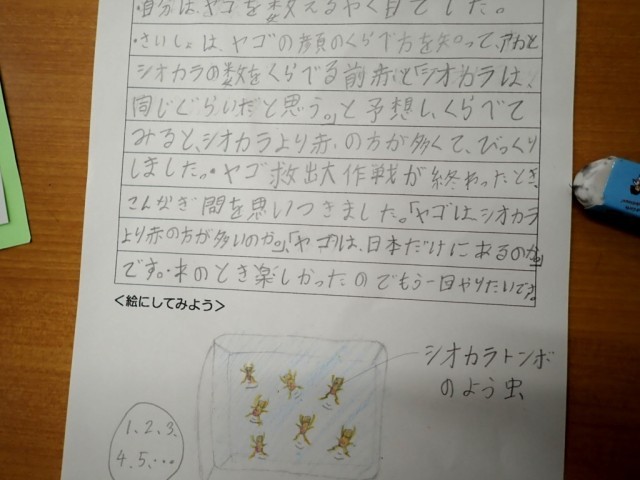 ・自分は、ヤゴを数えるやく目でした。
・さいしょは、ヤゴの顔のくらべ方を知って、アカと
シオカラの数をくらべる前、赤と「シオカラは、
同じぐらいだと思う。」と予想し、くらべて
みると、シオカラより赤の方が多くて、びっくり
しました。・ヤゴ救出大作戦が終わったとき、
こんなぎ問を思いつきました。「ヤゴは、シオカラ
より赤の方が多いのか。」「ヤゴは、日本だけにあるのか。」
です。・ のとき楽しかったのでもう一回やりたいです。
<絵にしてみよう>
シオカラトンボ
のよう虫
1、2、3、
4、5、…